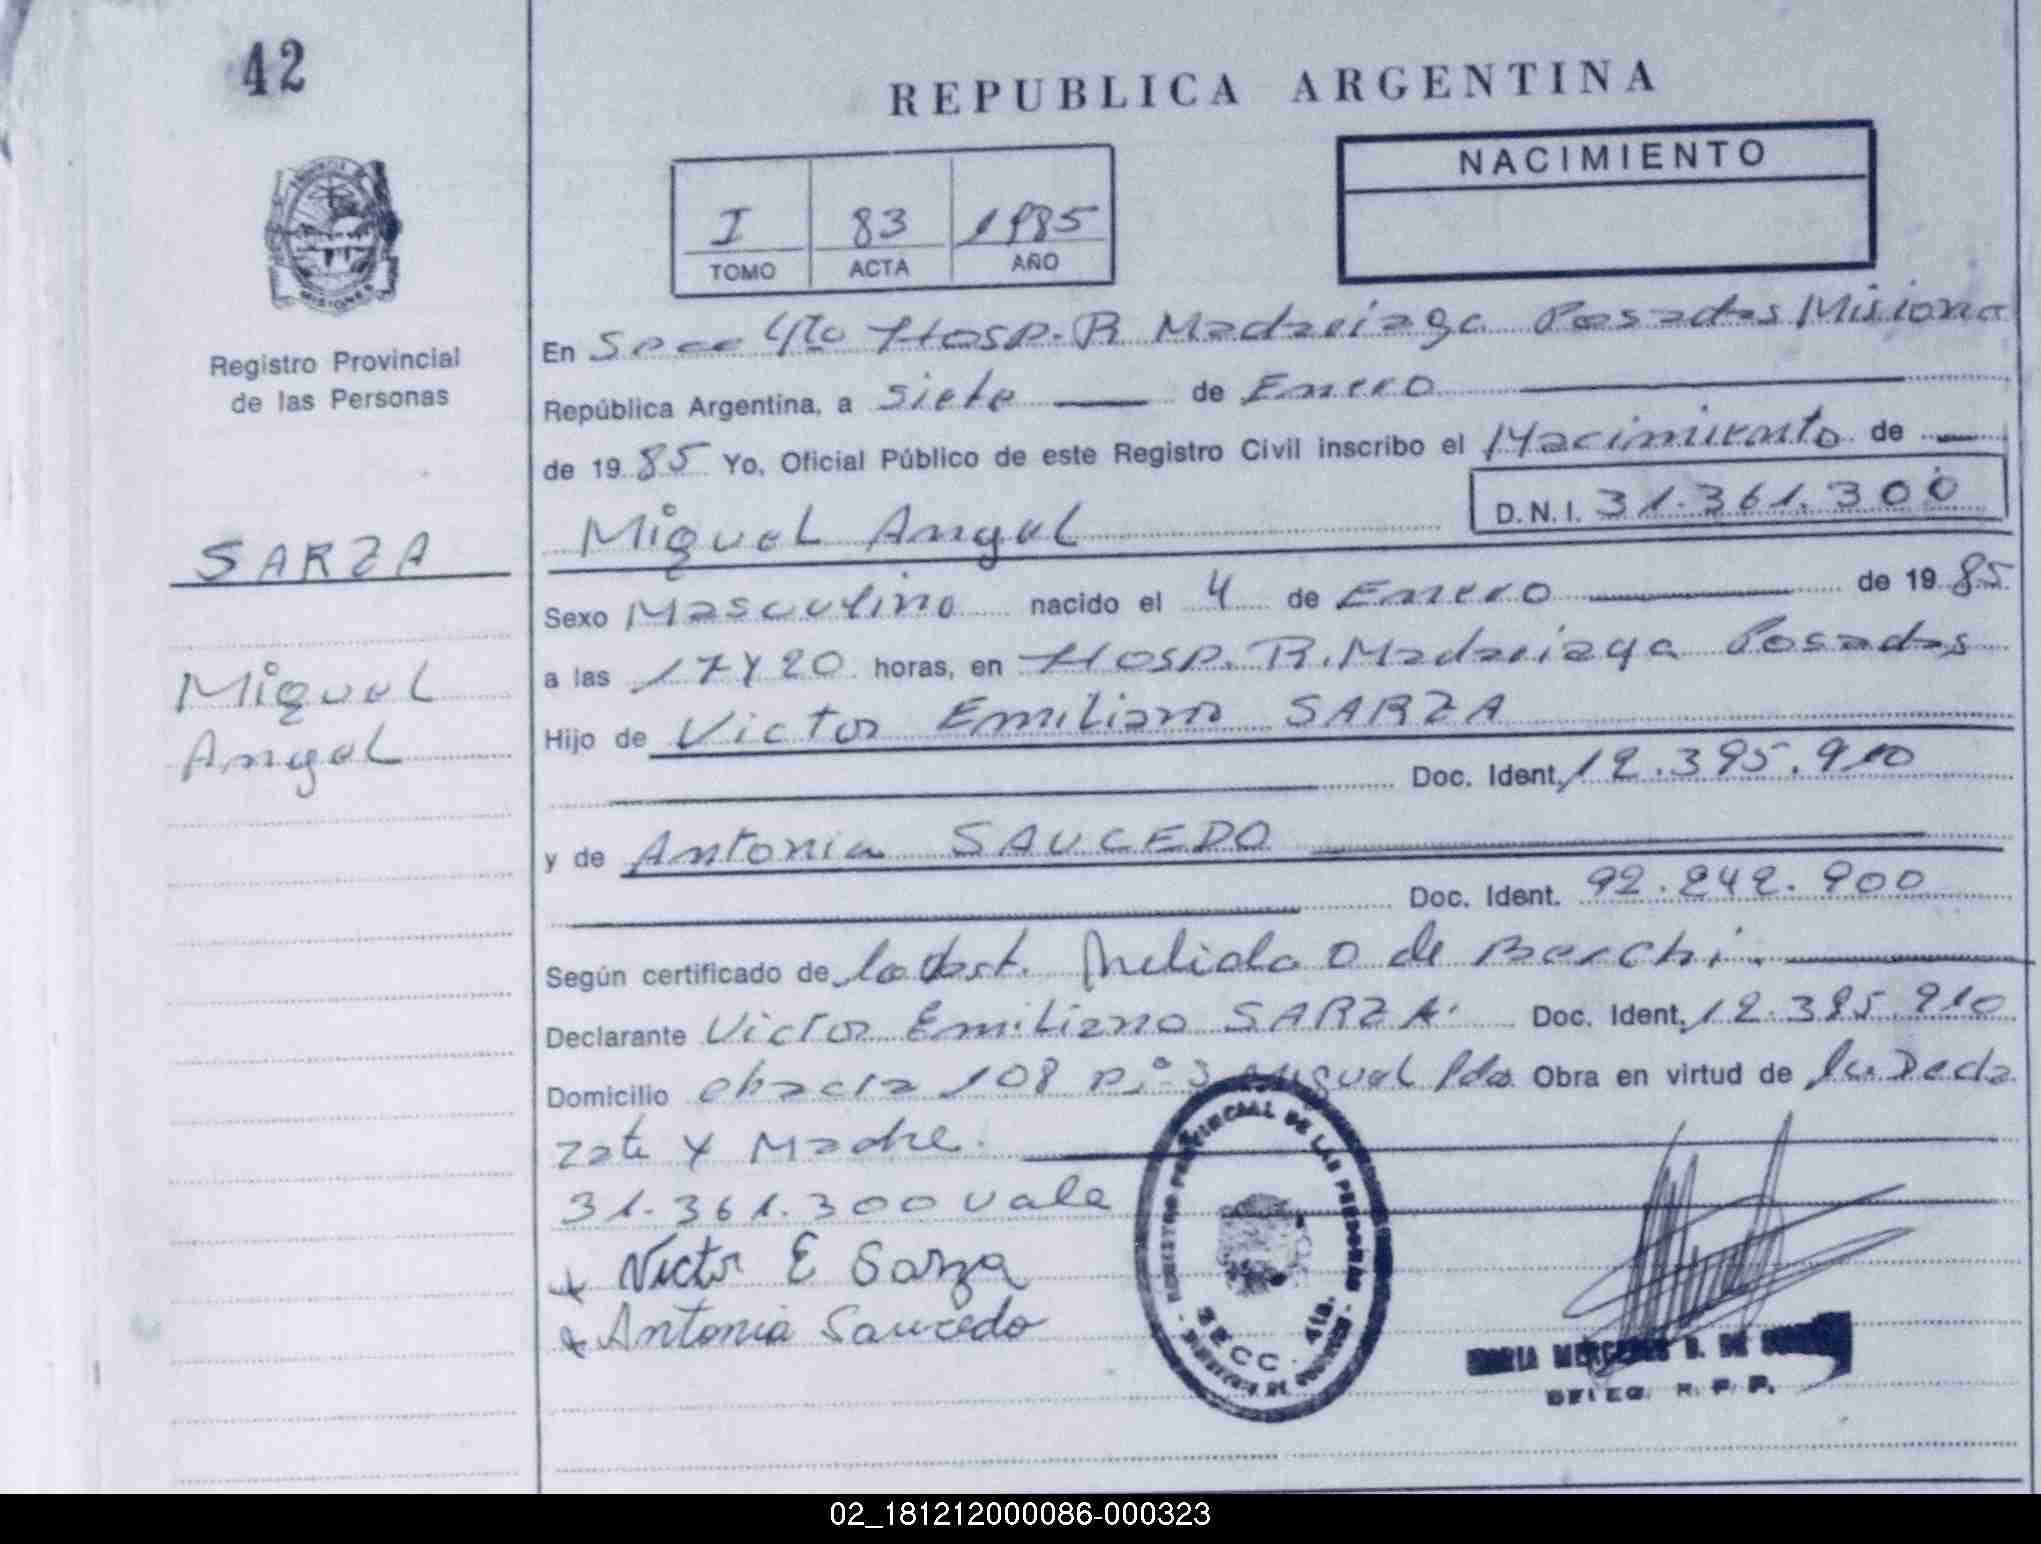 42
REPUBLICA ARGENTINA
NACIMIENTO
I 83 1985
TOMO ACTA AÑO
MISIONES
Registro Provincial
de las Personas
SARZA
Miguel
Angel
En Secc 4to Hosp. R Madariaga Posadas Misiones
República Argentina, a siete de Enero
de 1985 Yo, Oficial Público de este Registro Civil inscribo el Nacimiento de
Miguel Angel D.N.I. 31.361.300
Sexo Masculino nacido el 4 de Enero de 1985
a las 17 y 20 horas, en Hosp. R. Madariaga Posadas
Hijo de Victor Emiliano SARZA
Doc. Ident. 12.395.910
y de Antonia SAUCEDO
Doc. Ident. 92.242.900
Según certificado de la obst. Nelida O de
Declarante Victor Emiliano SARZA. Doc. Ident. 12.395.910
Domicilio chacra 108 Miguel Pdas Obra en virtud de la Decla
rate y Madre.
31.361.300 vale
x Victor E Sarza
x Antonia Saucedo
REGISTRO PROVINCIAL DE LAS PERSONAS
SECC. 4ta.
MARIA MERCEDES DE
DELEG. R. P. P.
02_181212000086-000323